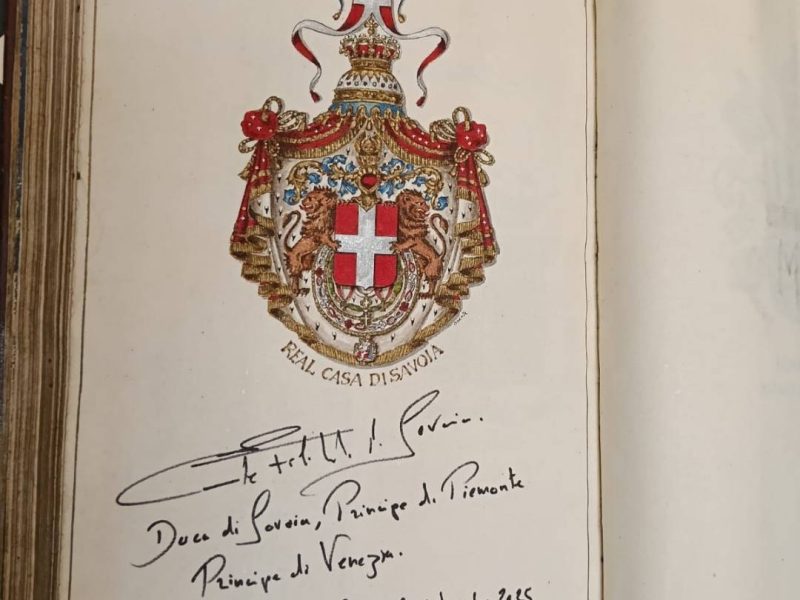 REAL CASA DI SAVOIA
di Savoia.
Duca di Savoia, Principe di Piemonte
Principe di Venezia.
2025